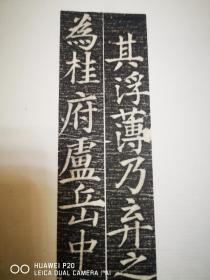 其浮薄乃弃之
為桂府盧岳中
HUAWEI P20
LEICA DUAL CAMERA | AI